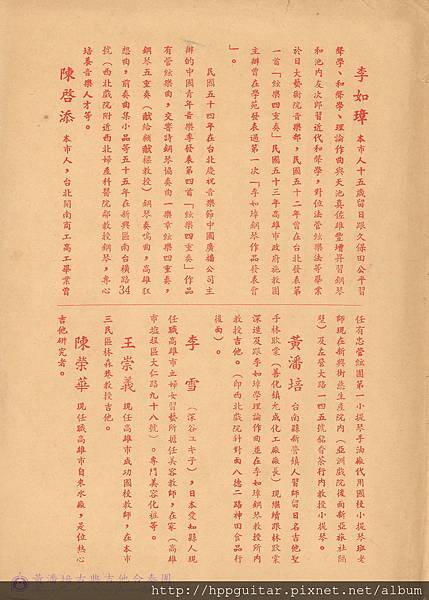 李如璋 本市人十五歲留日跟久保田公平習
聲學、和聲學、理論作曲與天池真佐雄豐增昇習鋼琴
和池内友次郎習近代和聲學，對位法管絃樂法等畢業
於日大藝術院音樂部，民國五十二年曾在台北發表第
一首「絃樂四重奏」民國五十三年高雄市政府施教團
主辦曾在學苑發表過第一次「李如璋鋼琴作品發表會
」。
民國五十四年在台北慶祝音樂節中國廣播公司主
辦的中國青年音樂季發表第四首「絃樂四重奏」作品
有管絃樂曲，交響詩鋼琴協奏曲一樂章絃樂四重奏，
鋼琴五重奏（獻給顏献樑教授）鋼琴奏鳴曲，高雄狂
想曲，前奏曲集小品等五十五年在新興區南台橫路34
號（西北戲院附近西北婦產科醫院鄰教授鋼琴，專心
培養音樂人才等。
陳啓添 本市人，台北開南商工高工畢業曾
任有志管絃團第一小提琴手油廠代用國校小提琴班老
師現在新興街燕生產院内（亞洲戲院後面新亞旅社隔
壁）及左營大路一四五號銘香茶行内教授小提琴。
黃潘培 台南縣新營鎮人醫師留日名吉他聖
手林欺棠（善化鎮允成化工廠廠長）現繼續跟林欺棠
深造及跟李如璋學理論作曲並在李如璋鋼琴教授所内
教授吉他。（即西北戲院斜對面八德二路神田食品行
後面）。
李 雪 （深谷ユキ子），日本愛知縣人現
任職高雄市立婦女習藝所擔任美容教師，在家（高雄
市塩埕區大仁路九十八號）。專門美容化粧等。
王崇義 現任高雄市成功國校教師，在本市
三民區林森巷教授吉他。
陳榮華 現任職高雄市自來水廠，是位熱心
吉他研究者。
黃潘培古典吉他合奏團
http://hppguitar.pixnet.net/album